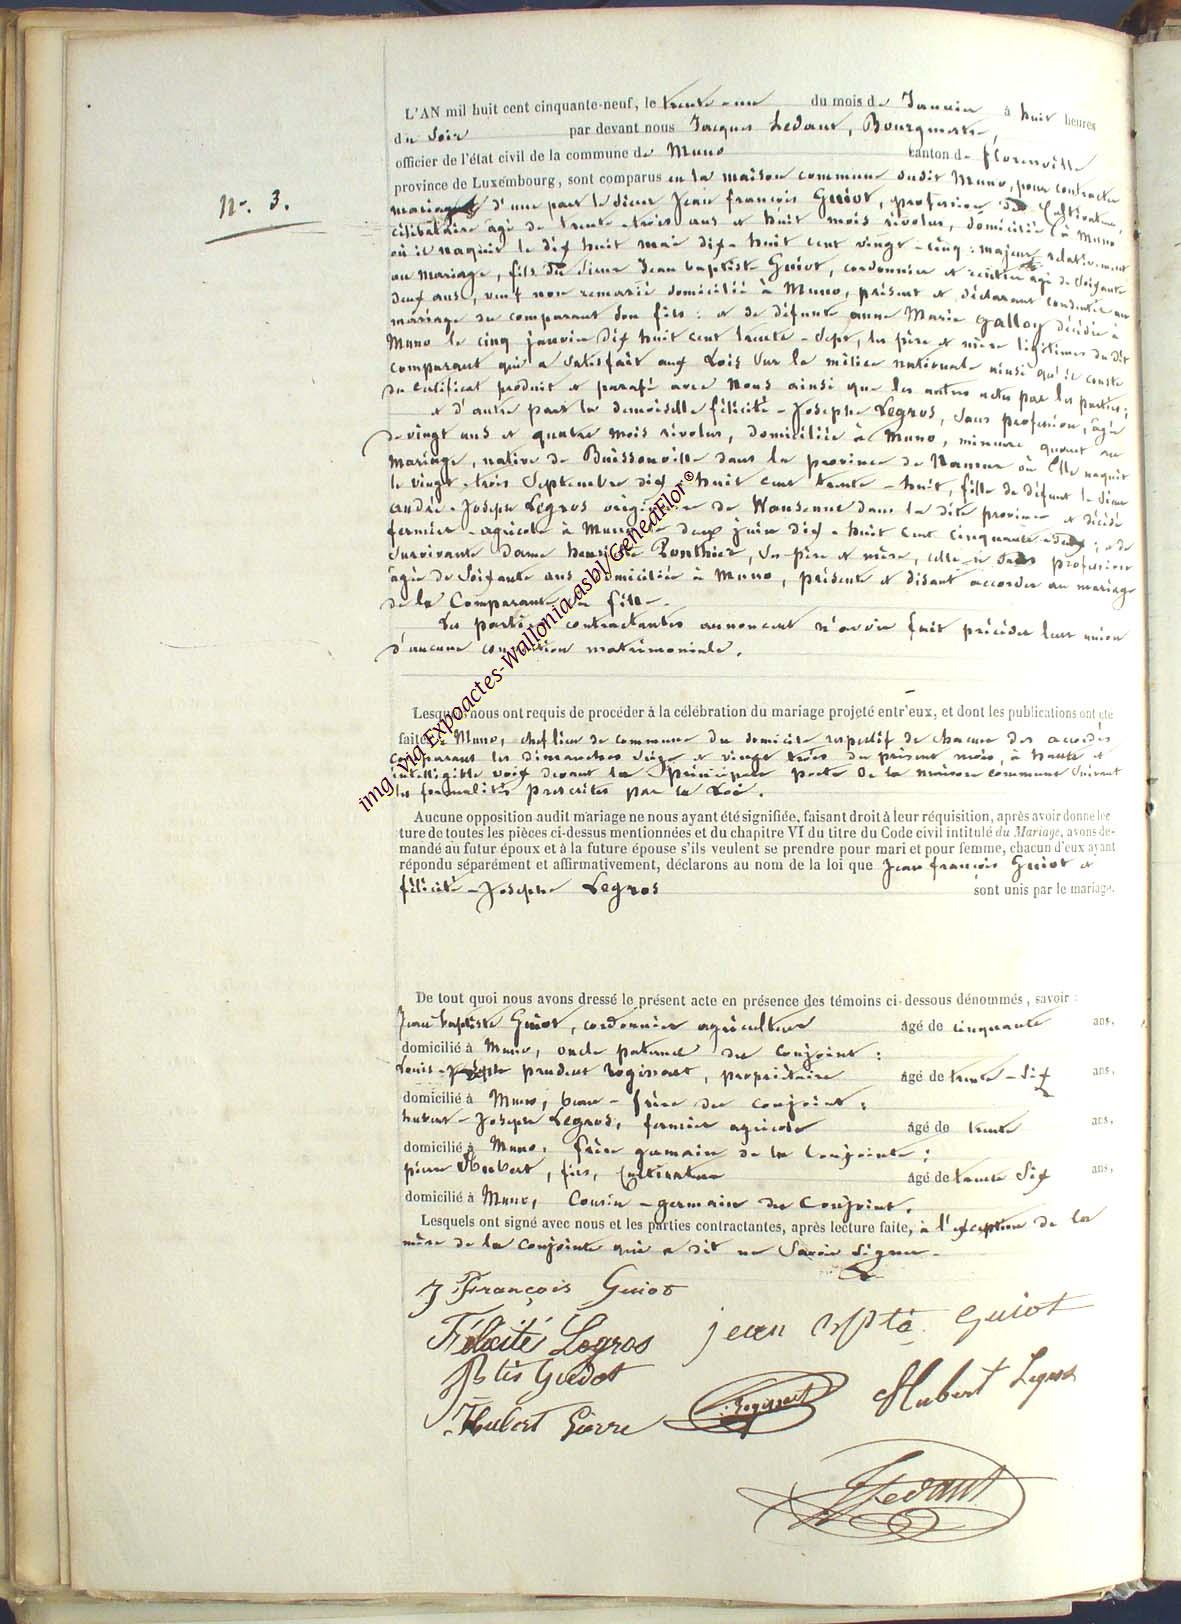 N°. 3.
L'AN mil huit cent cinquante-neuf, le trente-un du mois de Janvier à huit heures
du soir par devant nous Jacques Ledant, Bourgmestre,
officier de l'état civil de la commune de Muno canton de Florenville
province de Luxembourg, sont comparus en la maison commune dudit Muno, pour contracter
mariage d'une part le sieur Jean françois Guiot, profession de Cultivateur,
célibataire âgé de trente-trois ans et huit mois révolus, domicilié à Muno
où il naquit le dix huit mai dix-huit cent vingt-cinq : majeur relativement
au mariage, fils du sieur Jean baptiste Guiot, cordonnier et rentier âgé de soixante
deux ans, veuf non remarié domicilié à Muno, présent et déclarant consentir au
mariage du comparant son fils : et de défunte anne Marie Galloy décédée à
Muno le cinq janvier dix huit cent trente-sept, les père et mère légitimes du dit
comparant qui a satisfait aux Lois sur la milice nationale ainsi qu'il conste
du certificat produit et parafé avec Nous ainsi que les autres actes par les parties ;
et d'autre part la demoiselle félicité-Josephe Legros, sans profession, âgée
de vingt ans et quatre mois révolus, domiciliée à Muno, mineure quant au
mariage, native de Buissonville dans la province de Namur où Elle naquit
le vingt-trois Septembre dix-huit cent trente-huit, fille de défunt le sieur
andré-Joseph Legros originaire de Wansenne dans la dite province et décédé
fermier-agricole à Muno le deux juin dix-huit cent cinquante-deux ; et de
survivante dame henriette Ponthier, ses père et mère, celle-ci sans profession
âgée de soixante ans domiciliée à Muno, présente et disant accorder au mariage
de la Comparante sa fille.
Les parties contractantes annoncent n'avoir fait précéder leur union
d'aucune convention matrimoniale.
Lesquels nous ont requis de procéder à la célébration du mariage projeté entr'eux, et dont les publications ont été
faites à Muno, chef lieu de commune du domicile respectif de chacun des accordés
comparants les dimanches seize et vingt trois du présent mois, à haute et
intelligible voix devant la principale porte de la maison commune suivant
les formalités prescrites par la Loi.
Aucune opposition audit mariage ne nous ayant été signifiée, faisant droit à leur réquisition, après avoir donné lec
ture de toutes les pièces ci-dessus mentionnées et du chapitre VI du titre du Code civil intitulé du Mariage, avons de-
mandé au futur époux et à la future épouse s'ils veulent se prendre pour mari et pour femme, chacun d'eux ayant
répondu séparément et affirmativement, déclarons au nom de la loi que Jean françois Guiot et
félicité-Josephe Legros sont unis par le mariage.
De tout quoi nous avons dressé le présent acte en présence des témoins ci-dessous dénommés, savoir :
Jean baptiste Guiot, cordonnier agriculteur âgé de cinquante ans,
domicilié à Muno, oncle paternel du conjoint ;
Louis-Joseph prudent rogissart, propriétaire âgé de trente-six ans,
domicilié à Muno, beau-frère du conjoint ;
hubert-Joseph Legros, fermier agricole âgé de trente ans,
domicilié à Muno, frère germain de la Conjointe ;
pierre Hubert, fils, Cultivateur âgé de trente six ans,
domicilié à Muno, Cousin-germain du Conjoint.
Lesquels ont signé avec nous et les parties contractantes, après lecture faite, à l'exception de la
mère de la conjointe qui a dit ne savoir signer.
J François Guiot
Félicité Legros jean Bpte Guiot
Btis Guiot
Hubert Pierre Rogissart Hubert Legros
J Ledant
img. via Expoactes-Wallonia asbl/GeneaFlor©